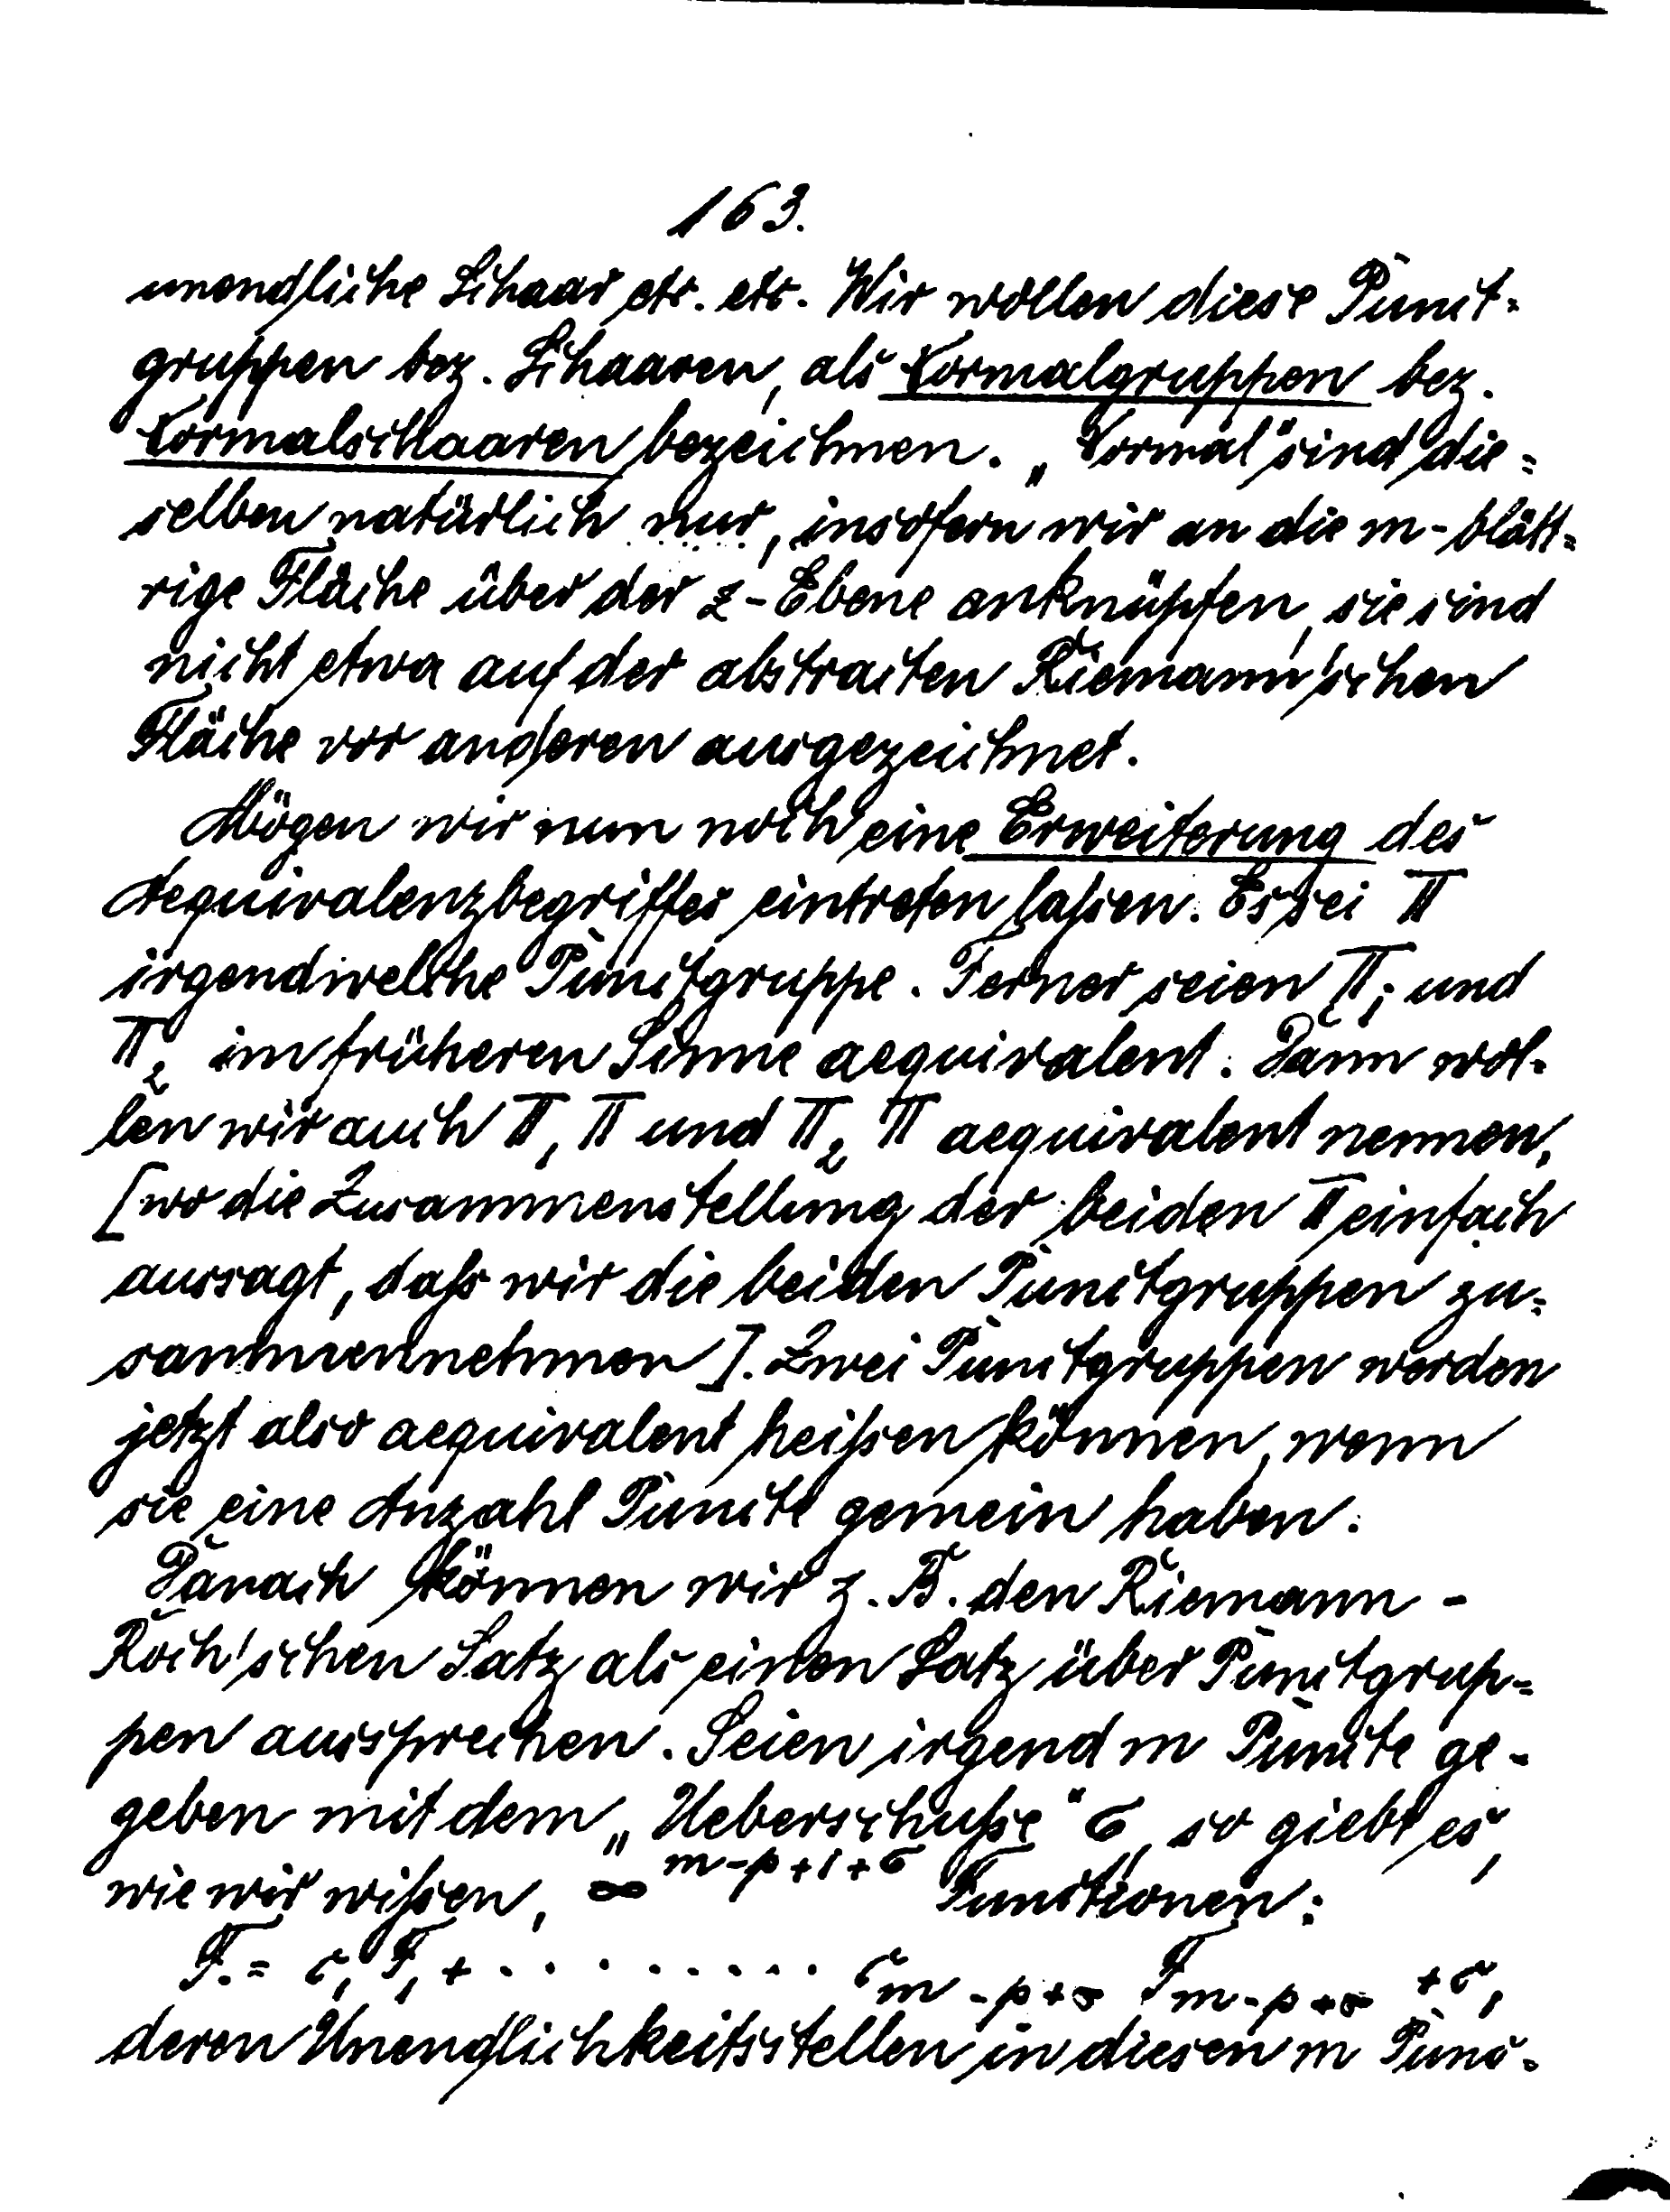 163.
unendliche Schaar etc. etc. Wir wollen diese Punct-
gruppen bez. Schaaren, als Normalgruppen bez.
Normalschaaren bezeichnen. „Normal" sind die-
selben natürlich nur, insofern wir an die m-blätt-
rige Fläche über der z-Ebene anknüpfen, sie sind
nicht etwa auf der abstracten Riemann'schen
Fläche vor anderen ausgezeichnet.
Mögen wir nun noch eine Erweiterung des
Aequivalenzbegriffes eintreten laßen. Es sei Π
irgendwelche Punctgruppe. Ferner seien Π₁ und
Π₂ im früheren Sinne aequivalent. Dann wol-
len wir auch Π₁ Π und Π₂ Π aequivalent nennen,
[wo die Zusammenstellung der beiden Π einfach
aussagt, daß wir die beiden Punctgruppen zu-
sammennehmen]. Zwei Punctgruppen werden
jetzt also aequivalent heißen können, wenn
sie eine Anzahl Puncte gemein haben.
Danach können wir z. B. den Riemann-
Roch'schen Satz als einen Satz über Punctgrup-
pen aussprechen. Seien irgend m Puncte ge-
geben mit dem „Ueberschuße" σ, so giebt es,
wie wir wißen, ∞^{m-p+1+σ} Functionen:
F = c₁ F₁ + . . . . . . . . . c_{m-p+σ} F_{m-p+σ} + c,
deren Unendlichkeitsstellen in diesen m Punc-